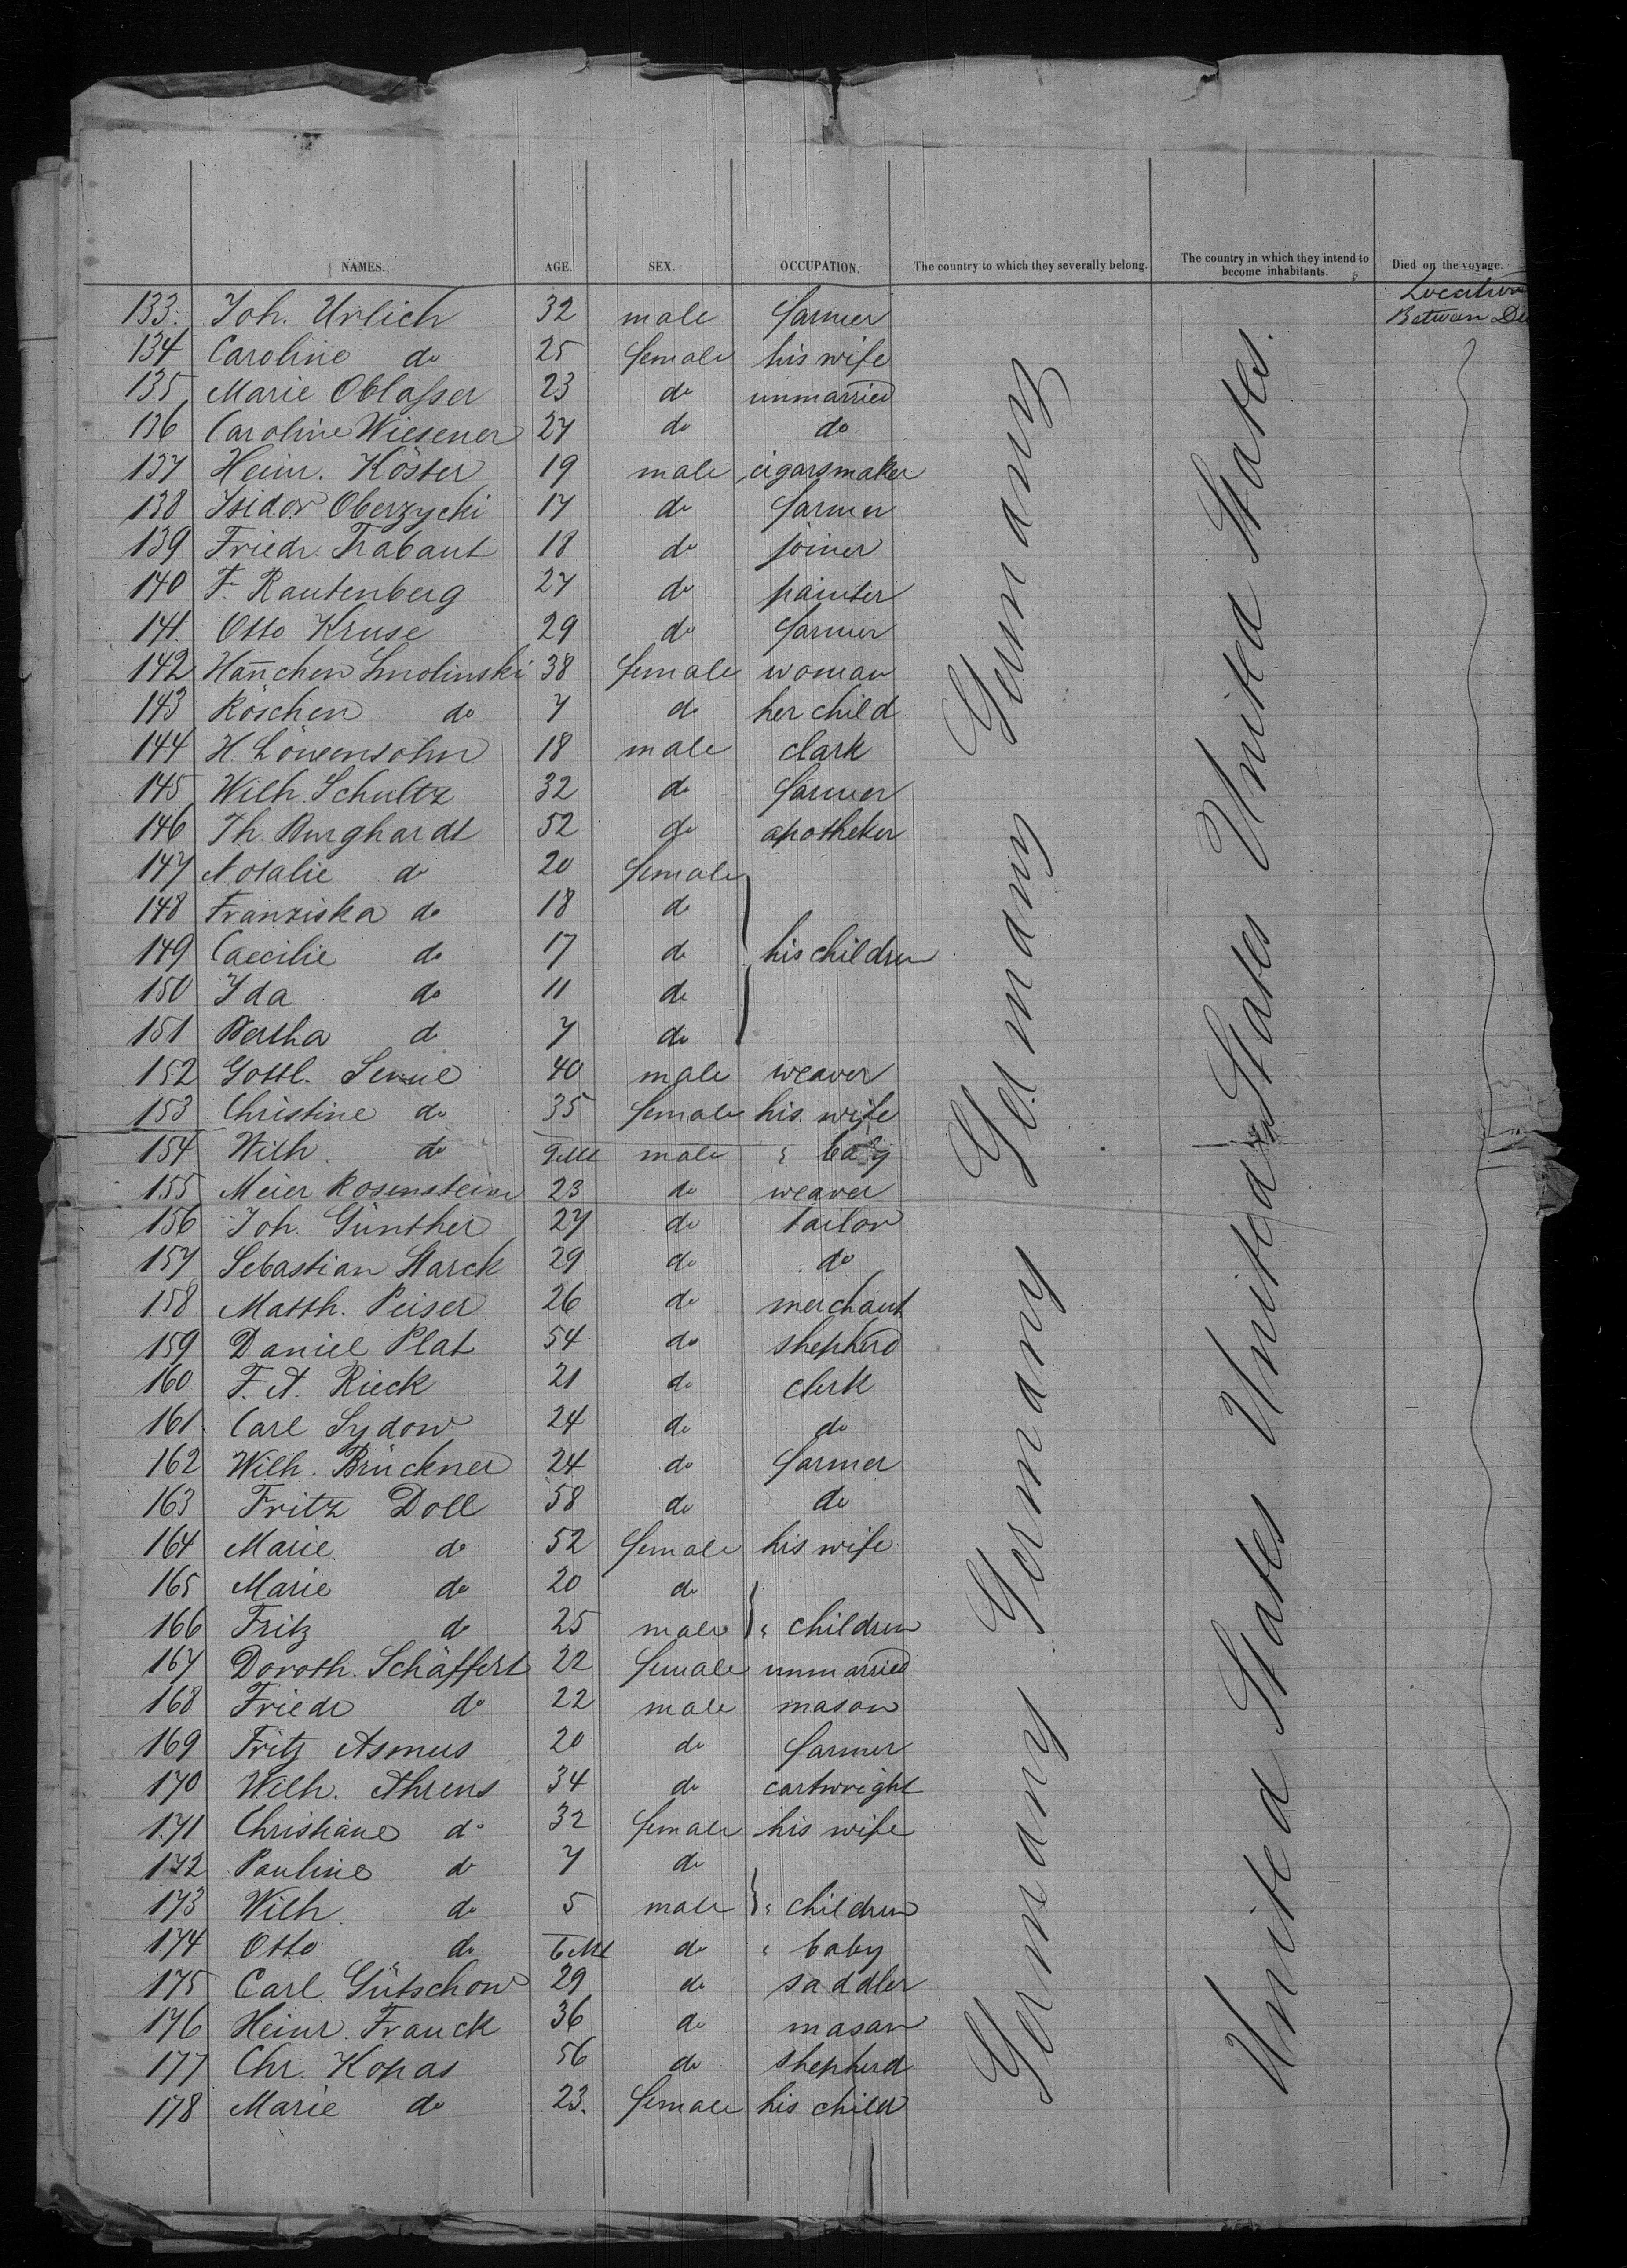 NAMES. AGE. SEX. OCCUPATION. The country to which they severally belong. The country in which they intend to become inhabitants. Died on the voyage.
Location
Between
133. Joh. Urlich 32 male farmer
134 Caroline do 25 female his wife
135 Marie Oblaſser 23 do unmarried
136 Caroline Wiesener 27 do do
137 Heinr. Köster 19 male cigarsmaker
138 Isidor Oberzycki 17 do farmer
139 Friedr. Trabant 18 do joiner
140 F. Rautenberg 27 do painter
141 Otto Kruse 29 do farmer
142 Han̄chen Smolinski 38 female woman
143 Röschen do 7 do her child
144 H. Löwensohn 18 male clark
145 Wilh. Schultz 32 do farmer
146 Th. Burghardt 52 do apotheker
147 Rosalie do 20 female
148 Franziska do 18 do
149 Caecilie do 17 do his children
150 Ida do 11 do
151 Bertha do 7 do
152 Gottl. 40 male weaver
153 Christine do 35 female his wife
154 Wilh. do 9 M male " baby
155 Meier Rosenstein 23 do weaver
156 Joh. Günther 27 do tailor
157 Sebastian Starck 29 do do
158 Matth. Peiser 26 do merchant
159 Daniel Plat 54 do shepherd
160 F. A. Rieck 21 do clerk
161 Carl Sydow 24 do do
162 Wilh. Brückner 24 do farmer
163 Fritz Doll 58 do do
164 Marie do 52 female his wife
165 Marie do 20 do
166 Fritz do 25 male " children
167 Doroth. Schäffert 22 female unmarried
168 Friedr do 22 male mason
169 Fritz Asmus 20 do farmer
170 Wilh. Ahrens 34 do cartwright
171 Christiane do 32 female his wife
172 Pauline do 7 do
173 Wilh. do 5 male " children
174 Otto do 6 M do " baby
175 Carl Gütschow 29 do saddler
176 Heinr. Franck 36 do masan
177 Chr. Kopas 56 do shepherd
178 Marie do 23. female his child
Germany Germany Germany Germany
United States United States United States.